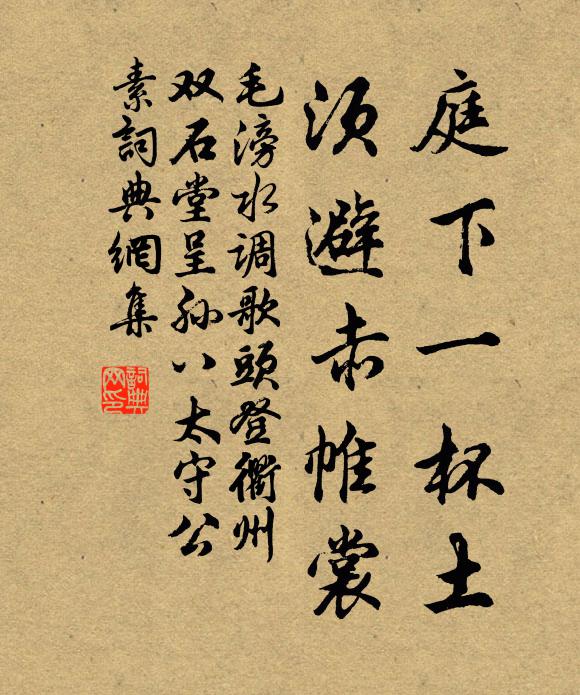 庭下一杯土
須避赤帷裳
毛滂水調歌頭登衢州
双石堂呈孫八太守公
素詞典網集
詞典
网印